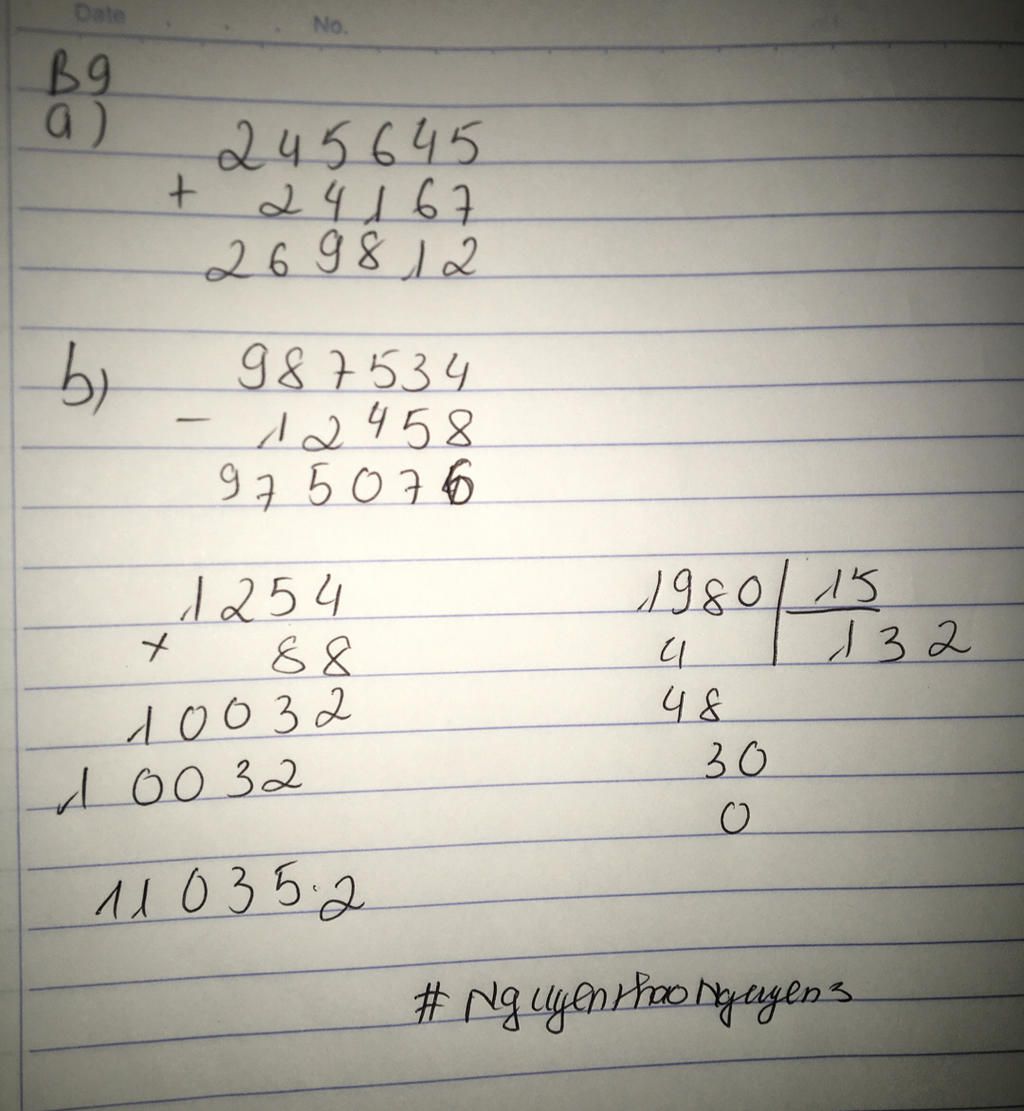 Date . . . No.
B9
a)
245645
+ 24167
269812
b) 987534
- 12458
975076
1254
× 88
10032
10032
11035.2
1980 15
4 132
48
30
0
# NguyenthaoNguyen3